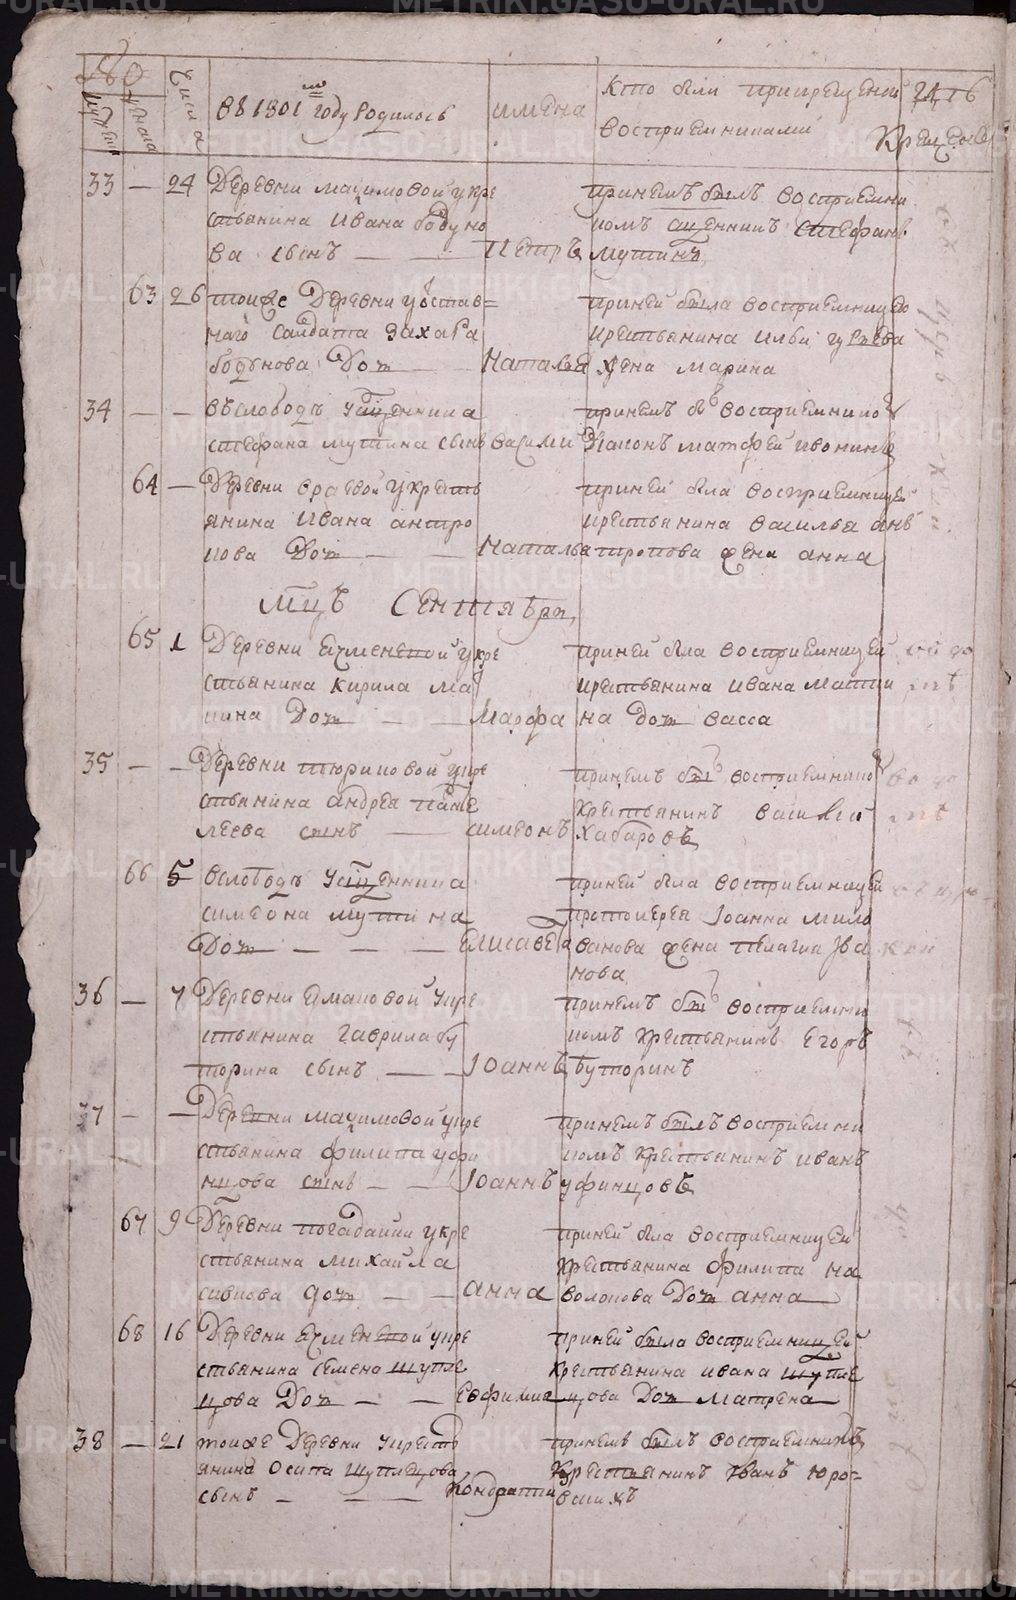 числа
въ 1801 м году Родилось
имена
Кто были прикрещении
восприемниками
Крещены
33 — 24 Деревни максимовой укре
стьянина Ивана бобуно
ва сынъ — — Петръ
принемъ былъ восприемни
комъ сщенникъ Стефанъ
мутинъ
63 26 тоиже Деревни уотстав=
наго салдата Захара
бобунова Доч — Наталья
приней была восприемницею
крестьянина ильи
жена марина
34 — — въслободъ усщенника
стефана мутина сынъ василий
принемъ бы восприемнико
Диаконъ матфей ивонинъ
64 — Деревни укресть
янина Ивана антро
пова Доч — — Наталья
приней была восприемницей
крестьянина василья ан
тропова жена анна
Мцъ Сентября
65 1 Деревни ячменевой укре
стьянина кирила ма
кина Доч — — Марфа
приней была восприемницей
крестьянина ивана маки
на доч васса
35 — — Деревни тюриковой укре
стьянина андрея панте
леева сынъ — симеонъ
принемъ бы восприемнико
Крестьянинъ василей
хабаровъ
66 5 вслободъ усщенника
симеона мутина
Доч — — — Елисавета
приней была восприемницей
протоиерея Іоанна мило
ванова жена пелагия Ива
нова
36 — 7 Деревни Ямановой укре
стьянина гаврила бу
торина сынъ — — Іоаннъ
принемъ бы восприемни
комъ крестьянинъ Егоръ
буторинъ
37 — — Деревни максимовой укре
стьянина филипа уфи
нцова сынъ — — Іоаннъ
принемъ былъ восприемни
комъ крестьянинъ иванъ
уфинцовъ
67 9 Деревни погадайки укре
стьянина михайла
сивкова доч — — анна
приней была восприемницей
крестьянина филипа на
волокова Доч анна
68 16 Деревни ячменевой укре
стьянина семена шупле
цова Доч — — Евфимия
приней была восприемницей
крестьянина ивана шупле
цова Доч матрена
38 — 21 тоиже Деревни укресть
янина Осипа шуплецова
сынъ — — — Кондратий
принемъ былъ восприемникъ
Крестьянинъ иванъ юро=
вскихъ